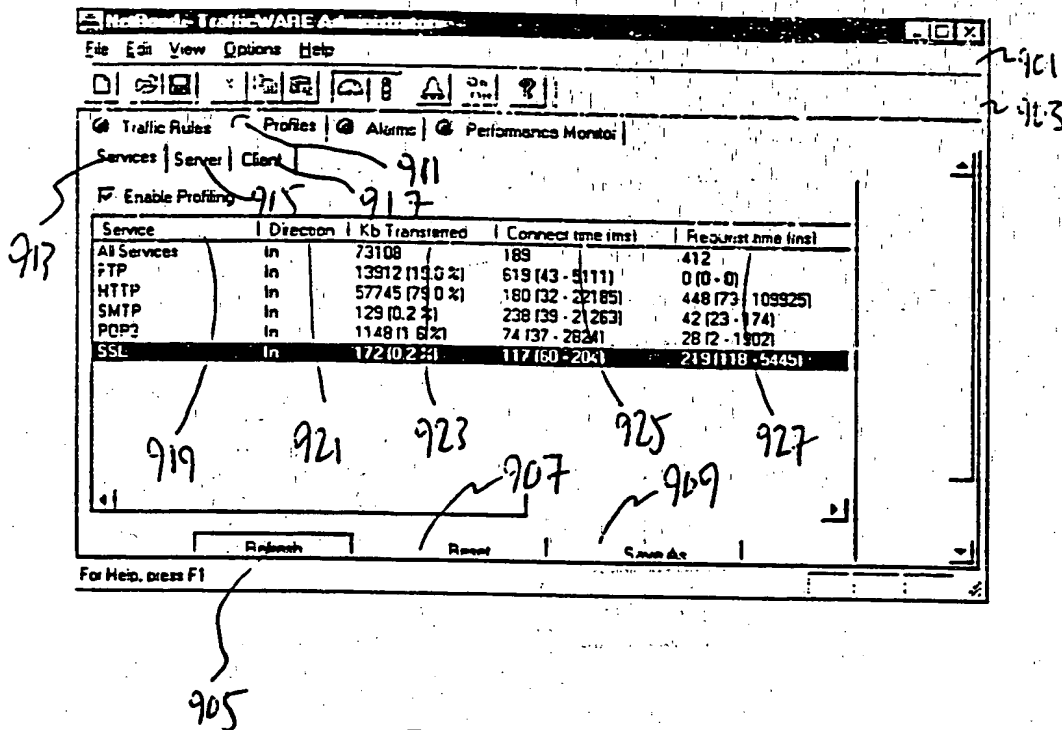 TrafficWARE Administrator
File Edit View Options Help
901
903
Traffic Rules Profiles Alarms Performance Monitor
Services Server Client
911
Enable Profiling 915 917
913
Service Direction Kb Transferred Connect time (ms) Request time (ms)
All Services In 73108 189 412
FTP In 13912 (19.0 %) 619 (43 - 5111) 0 (0 - 0)
HTTP In 57745 (79.0 %) 180 (32 - 22185) 448 (73 - 109925)
SMTP In 129 (0.2 %) 238 (39 - 21263) 42 (23 - 174)
POP3 In 1148 (1.6 %) 74 (37 - 2824) 28 (2 - 1902)
SSL In 172 (0.2 %) 117 (60 - 204) 219 (118 - 5445)
919 921 923 925 927
907 909
Refresh Reset Save As
For Help, press F1
905